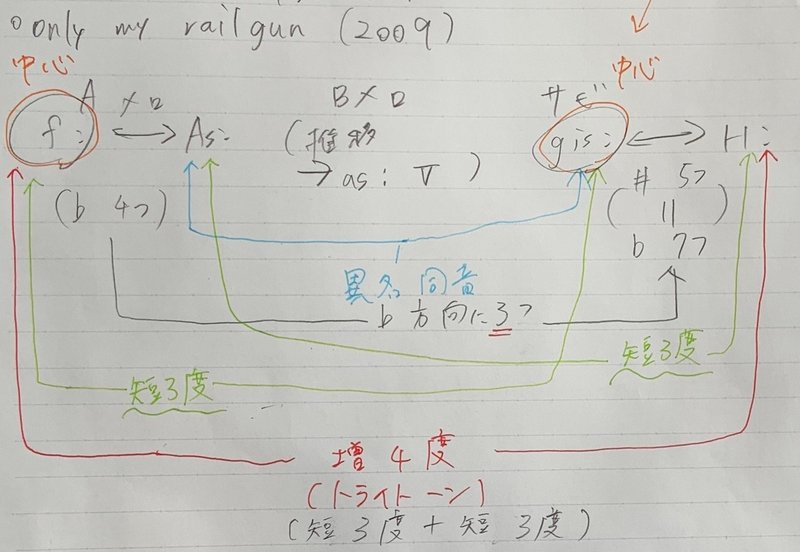 ○ only my railgun (2009)
中心
A メロ
B メロ
サビ
中心
f:
As:
(推移
→ as: V )
gis:
H:
(b 4つ)
( # 5つ
||
b 7つ )
異名同音
b 方向に3つ
短3度
短3度
増4度
(トライトーン)
(短3度+短3度)